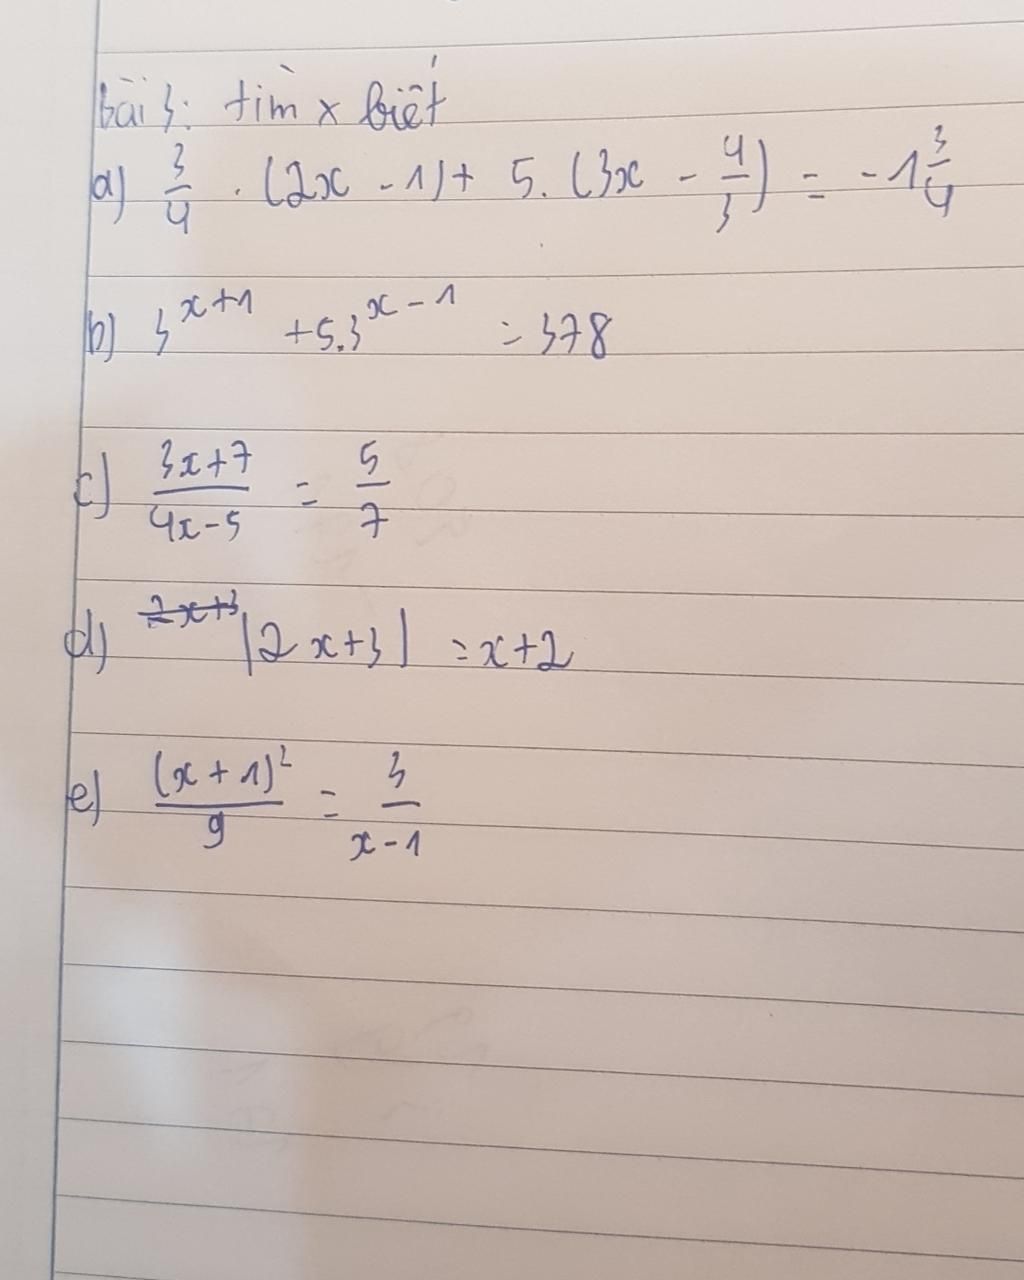 bài 3: tìm x biết
a) 3/4 . (2x - 1) + 5. (3x - 4/3) = -1 3/4
b) 3^(x+1) + 5.3^(x-1) = 378
c) (3x+7)/(4x-5) = 5/7
d) ~~2x+3~~ |2x+3| = x+2
e) (x+1)²/9 = 3/(x-1)